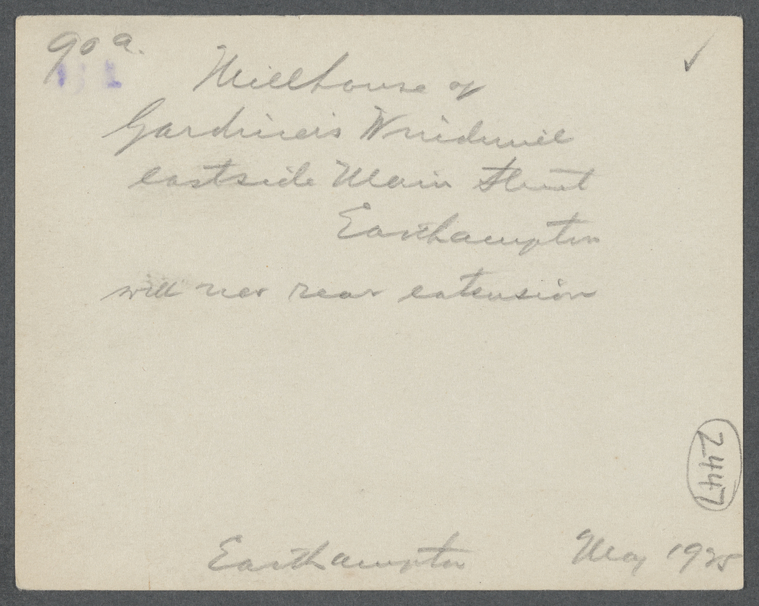 90 a.
Millhouse of
Gardiner's Windmill
eastside Main Street
Easthampton
with new rear extension
2447
Easthampton May 1925